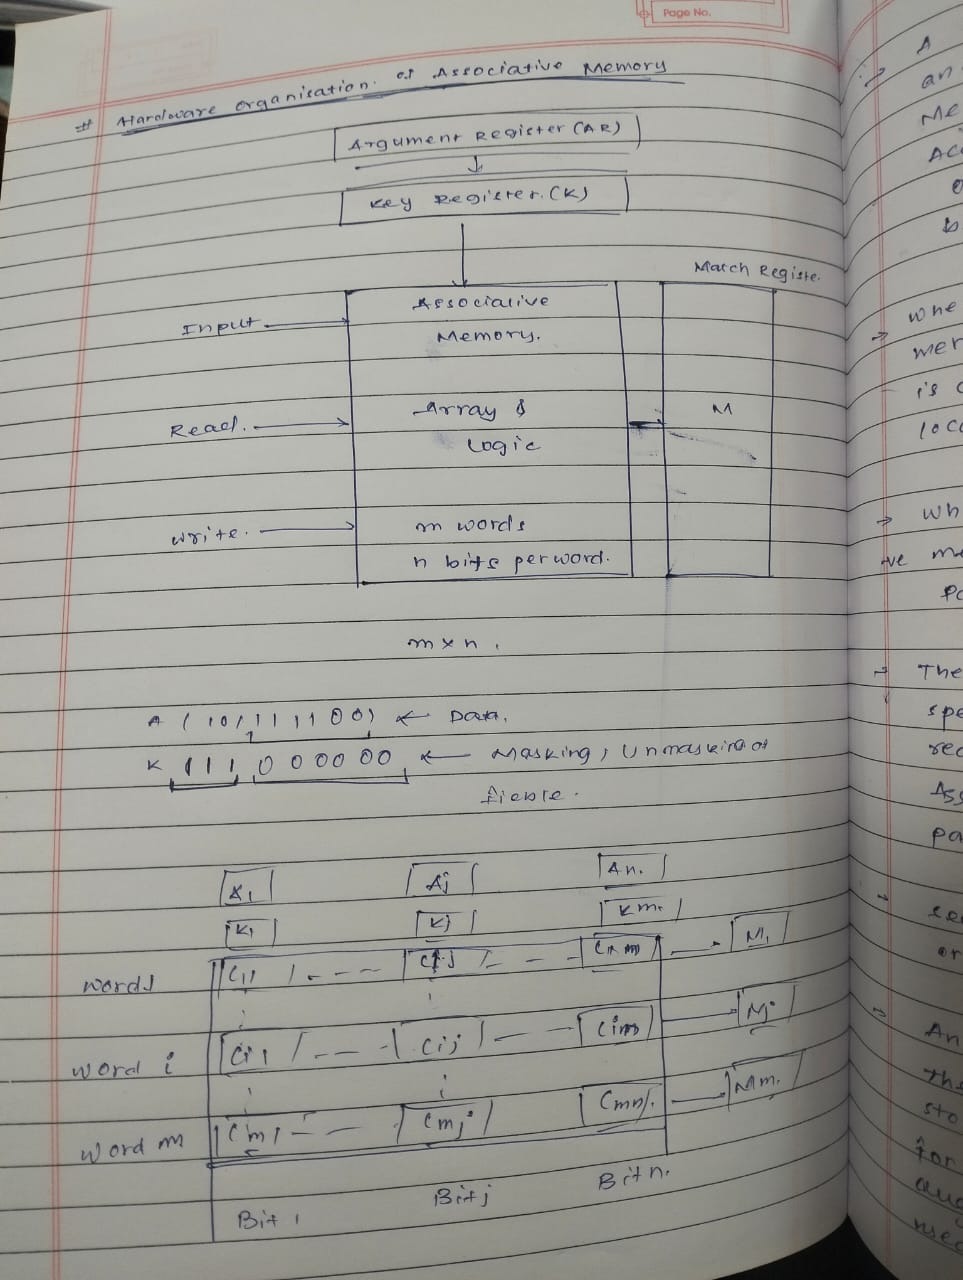 Page No.
# Hardware organisation of Associative Memory
Argument Register (AR)
Key Register (K)
Match Registe.
Associative
Input
Memory.
Array &
M
Read.
Logic
write.
m words
n bits per word.
m x n.
A ( 101 1 1 1 1 0 0) ← Data.
K 1 1 1 0 0 0 0 0 0 ← Masking, Unmasking of
A1 Aj An.
K1 Kj Km.
word 1 C11 C1j M1
word i Ci1 Cij Cim Mi
word m Cm1 Cmj Cmn. Mm.
Bit 1 Bit j Bit n.
A
an
Me
Ac
b
→ whe
mer
is
loc
→ wh
ve m
Po
→ The
spe
rec
Ass
pa
or
→ An
the
sto
for